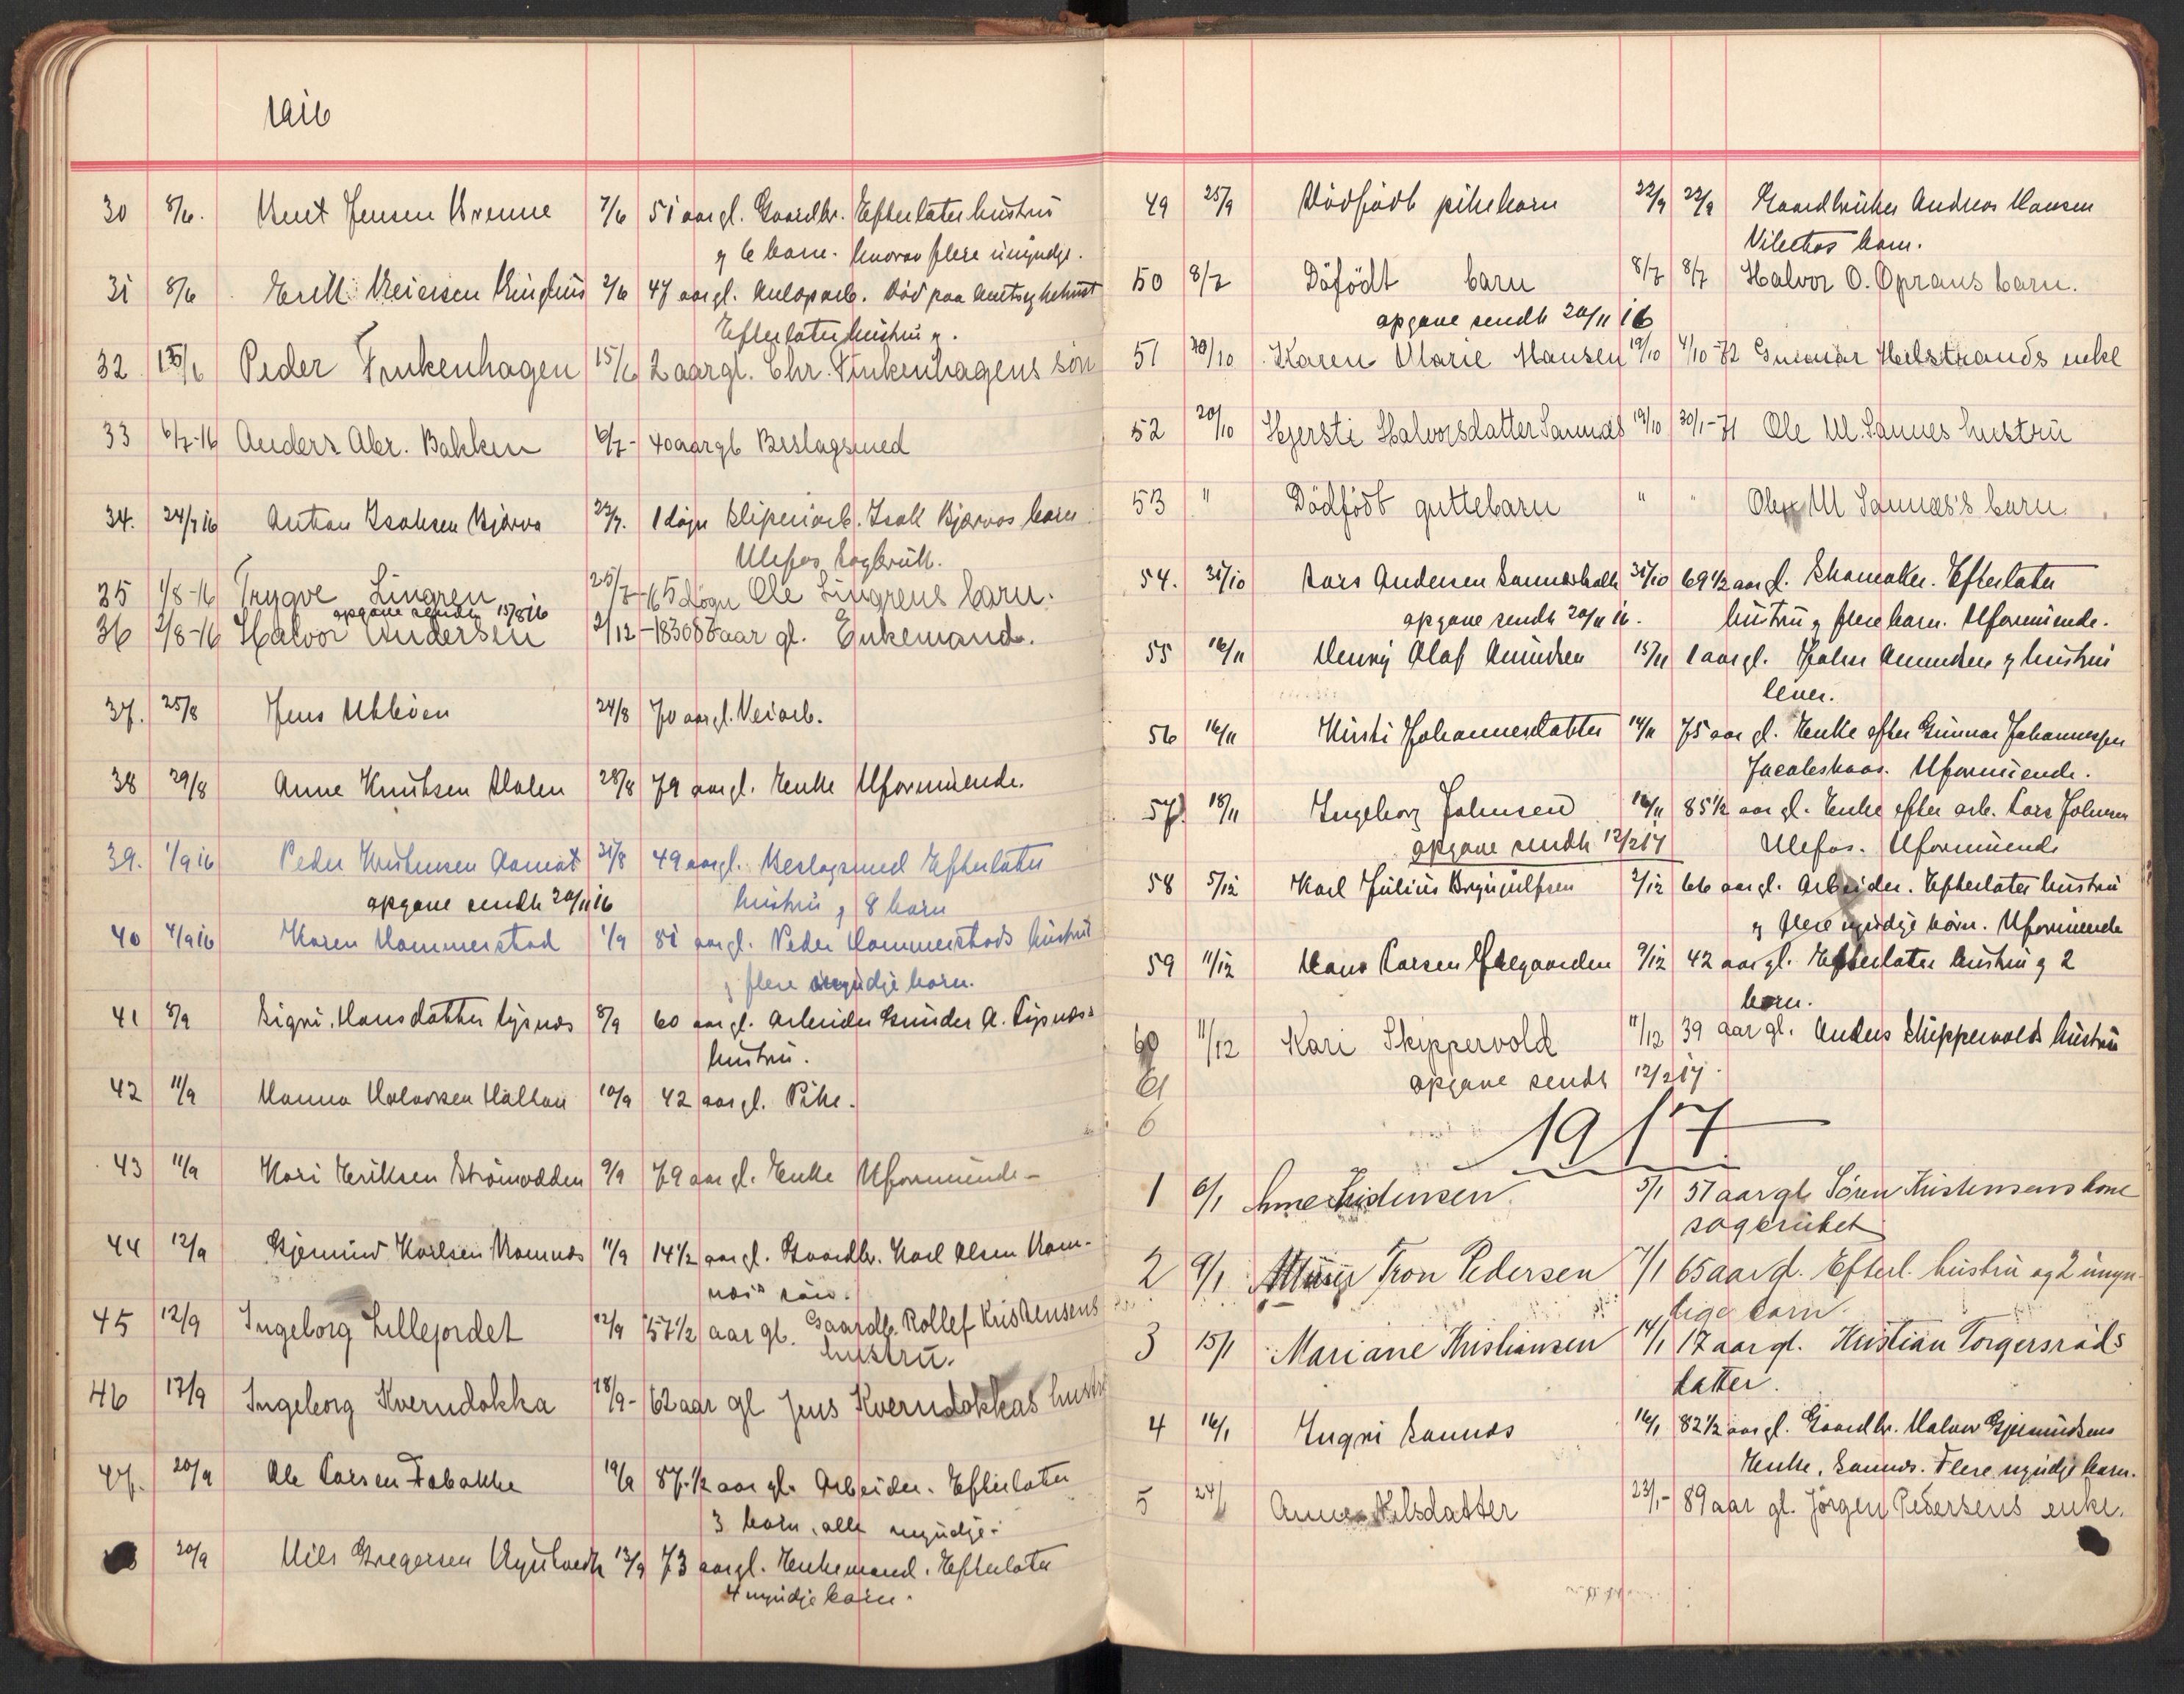 1916
30 8/6. Knut Jensen Brenne 7/6 51 aar gl. Gaardbr. Efterlater hustru
og 6 barn. hvorav flere umyndge.
31 8/6 Erik Reiersen Ringhus 2/6 47 aar gl. Anlæparb. Død paa Amtssykehuset
Efterlater hustru og.
32 15/6 Peder Finkenhagen 15/6 2 aar gl. Chr. Finkenhagens søn
33 6/7-16 Anders Abr. Bakken 6/7- 40 aar gl. Beslagsmed
34. 24/7 16 Anton Isaksen Bjerva 23/7. 1 døgn Sliperiarb. Isak Bjervas barn
Ulefos Sagbruk.
35 1/8-16 Trygve Lingren 25/7-16 5 døgn Ole Lingrens barn.
opgave sendt 15/8 16
36 2/8-16 Halvor Andersen 2/12-1830 85 aar gl. Enkemand.
37. 25/8 Jens Ubbøen 24/8 70 aar gl. Veiarb.
38 29/8 Anne Knutsen Dalen 28/8 79 aar gl. Enke Uformuende.
39. 1/9 16 Peder Kristensen Aamot 31/8 49 aar gl. Beslagsmed Efterlater
opgave sendt 20/11 16 hustru og 8 barn
40 4/9 16 Karen Hammerstad 1/9 81 aar gl. Peder Hammerstads hustru
og flere myndje barn.
41 8/9 Signi. Hansdatter Lysnæs 8/9 60 aar gl. Arbeider Gunder A. Lysnæs's
hustru.
42 11/9 Hanna Halvorsen 10/9 42 aar gl. Pike.
43 11/9 Kari Eriksen Strømodden 9/9 79 aar gl. Enke Uformuende-
44 12/9 Gjermund Karlsen Romnæs 11/9 14 1/2 aar gl. Gaardbr. Karl Olsen Rom-
næs's søn.
45 12/9 Ingeborg Lillejordet 12/9 57 1/2 aar gl. Gaardb. Rollef Kristensens
hustru.
46 17/9 Ingeborg Kverndokka 18/9- 62 aar gl Jens Kverndokkas hustr
47. 20/9 Ole Larsen Fabakke 19/9 87.1/2 aar gl. Arbeider. Efterlater
3 barn, alle myndje.
20/9 Nils Gregersen 13/9 73 aar gl. Enkemand. Efterlater
4 myndje barn.
49 25/9 Dødfødt pikebarn 22/9 22/9 Gaardbruker Andreas Hansen
barn.
50 8/7 Døfødt barn 8/7 8/7 Halvor O. Oprans barn.
opgave sendt 20/11 16
51 20/10 Karen Marie Hansen 19/10 4/10-72 Gunnar Helstrands enke
52 20/10 Kjersti Halvorsdatter Sannæs 19/10 30/1-71 Ole M. Sannes hustru
53 " Dødfødt guttebarn " " Ole M Sannæs's barn
54. 31/10 Lars Andersen Sannesholt 31/10 69 1/2 aar gl. Skomaker. Efterlater
opgave sendt 20/11 16. hustru og flere barn. Uformuende.
55 16/11 Henry Olaf Amundsen 15/11 1 aar gl. Johan Amundsen og hustru
lever.
56 16/11 Kirsti Johannesdatter 14/11 75 aar gl. Enke efter Gunnar Johannessen
Jacobskaas. Uformuende.
57 18/11 Ingeborg Johnsen 16/11 85 1/2 aar gl. Enke efter arb. Lars Johnsen
opgave sendt 12/2 17 Ulefos. Uformuende
58 5/12 Karl Julius Brynjulfsen 2/12 66 aar gl. Arbeider. Efterlater hustru
og flere myndje børn. Uformuende
59 11/12 Hans Larsen 9/12 42 aar gl. Efterlater hustru og 2
barn.
60 11/12 Kari Skippervold 11/12 39 aar gl. Anders Skippervolds hustru
61 opgave sendt 12/2 17.
6
1917
1 6/1 Anne Kristensen 5/1 51 aar gl. Søren Kristensens kone
sagbruket
2 9/1 Tron Pedersen 7/1 65 aar gl. Efterl. hustru og 2 umyn-
dige barn.
3 15/1 Mariane Kristiansen 14/1 17 aar gl. Kristian Torgersrøds
datter.
4 16/1 Ingri Sannæs 16/1 82 1/2 aar gl. Gaardbr. Halvor Gjermundsens
Enke, Sannæs. Flere myndje barn.
5 24/1 Anne Nilsdatter 23/1- 89 aar gl. Jørgen Pedersens enke.